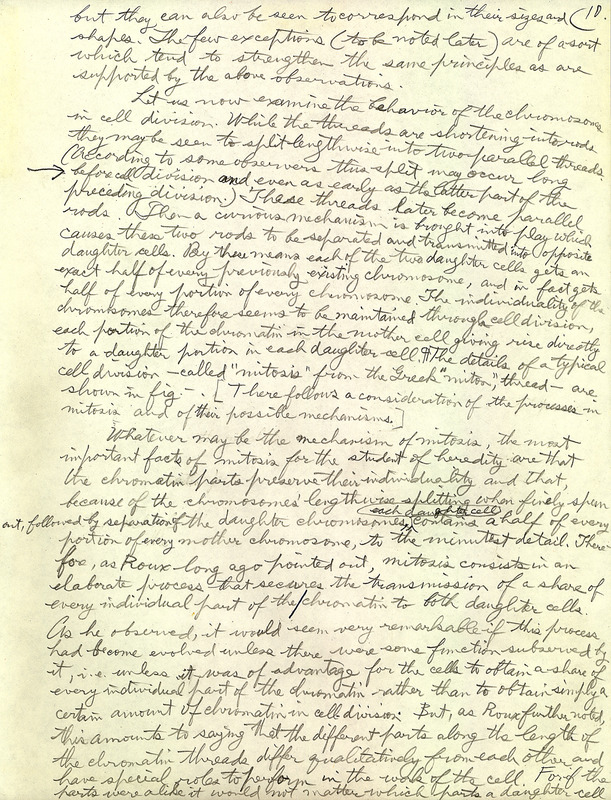 but they can also be seen to correspond in their sizes and (10.
shapes. The few exceptions (to be noted later) are of a sort
which tend to strengthen the same principles as are
supported by the above observations.
Let us now examine the behavior of the chromosomes
in cell division. While the threads are shortening into rods
they may be seen to split lengthwise into two parallel threads.
(According to some observers this split may occur long
before cell division and even as early as the latter part of the
preceding division.) These threads later become parallel
rods. Then a curious mechanism is brought into play which
causes these two rods to be separated and transmitted into opposite
daughter cells. By these means each of the two daughter cells gets an
exact half of every previously existing chromosome, and in fact gets
half of every portion of every chromosome. The individuality of the
chromosomes therefore seems to be maintained through cell division,
each portion of the chromatin in the mother cell giving rise directly
to a daughter portion in each daughter cell. ¶ The details of a typical
cell division - called "mitosis" from the Greek "miton", thread - are
shown in fig - . [There follows a consideration of the processes in
mitosis and of their possible mechanisms.]
Whatever may be the mechanism of mitosis, the most
important facts of mitosis for the student of heredity are that
the chromatin parts preserve their individuality and that,
because of the chromosomes' lengthwise splitting when finely spun
out, followed by separation of the daughter chromosomes, each daughter cell contains a half of every
portion of every mother chromosome, to the minutest detail. There-
fore, as Roux long ago pointed out, mitosis consists in an
elaborate process that secures the transmission of a share of
every individual part of the chromatin to both daughter cells.
As he observed, it would seem very remarkable if this process
had become evolved unless there were some function subserved by
it, i.e. unless it was of advantage for the cells to obtain a share of
every individual part of the chromatin rather than to obtain simply a
certain amount of chromatin in cell division. But, as Roux further noted,
this amounts to saying that the different parts along the length of
the chromatin threads differ qualitatively from each other and
have special roles to perform in the work of the cell. For if the
parts were alike it would not matter which parts a daughter cell